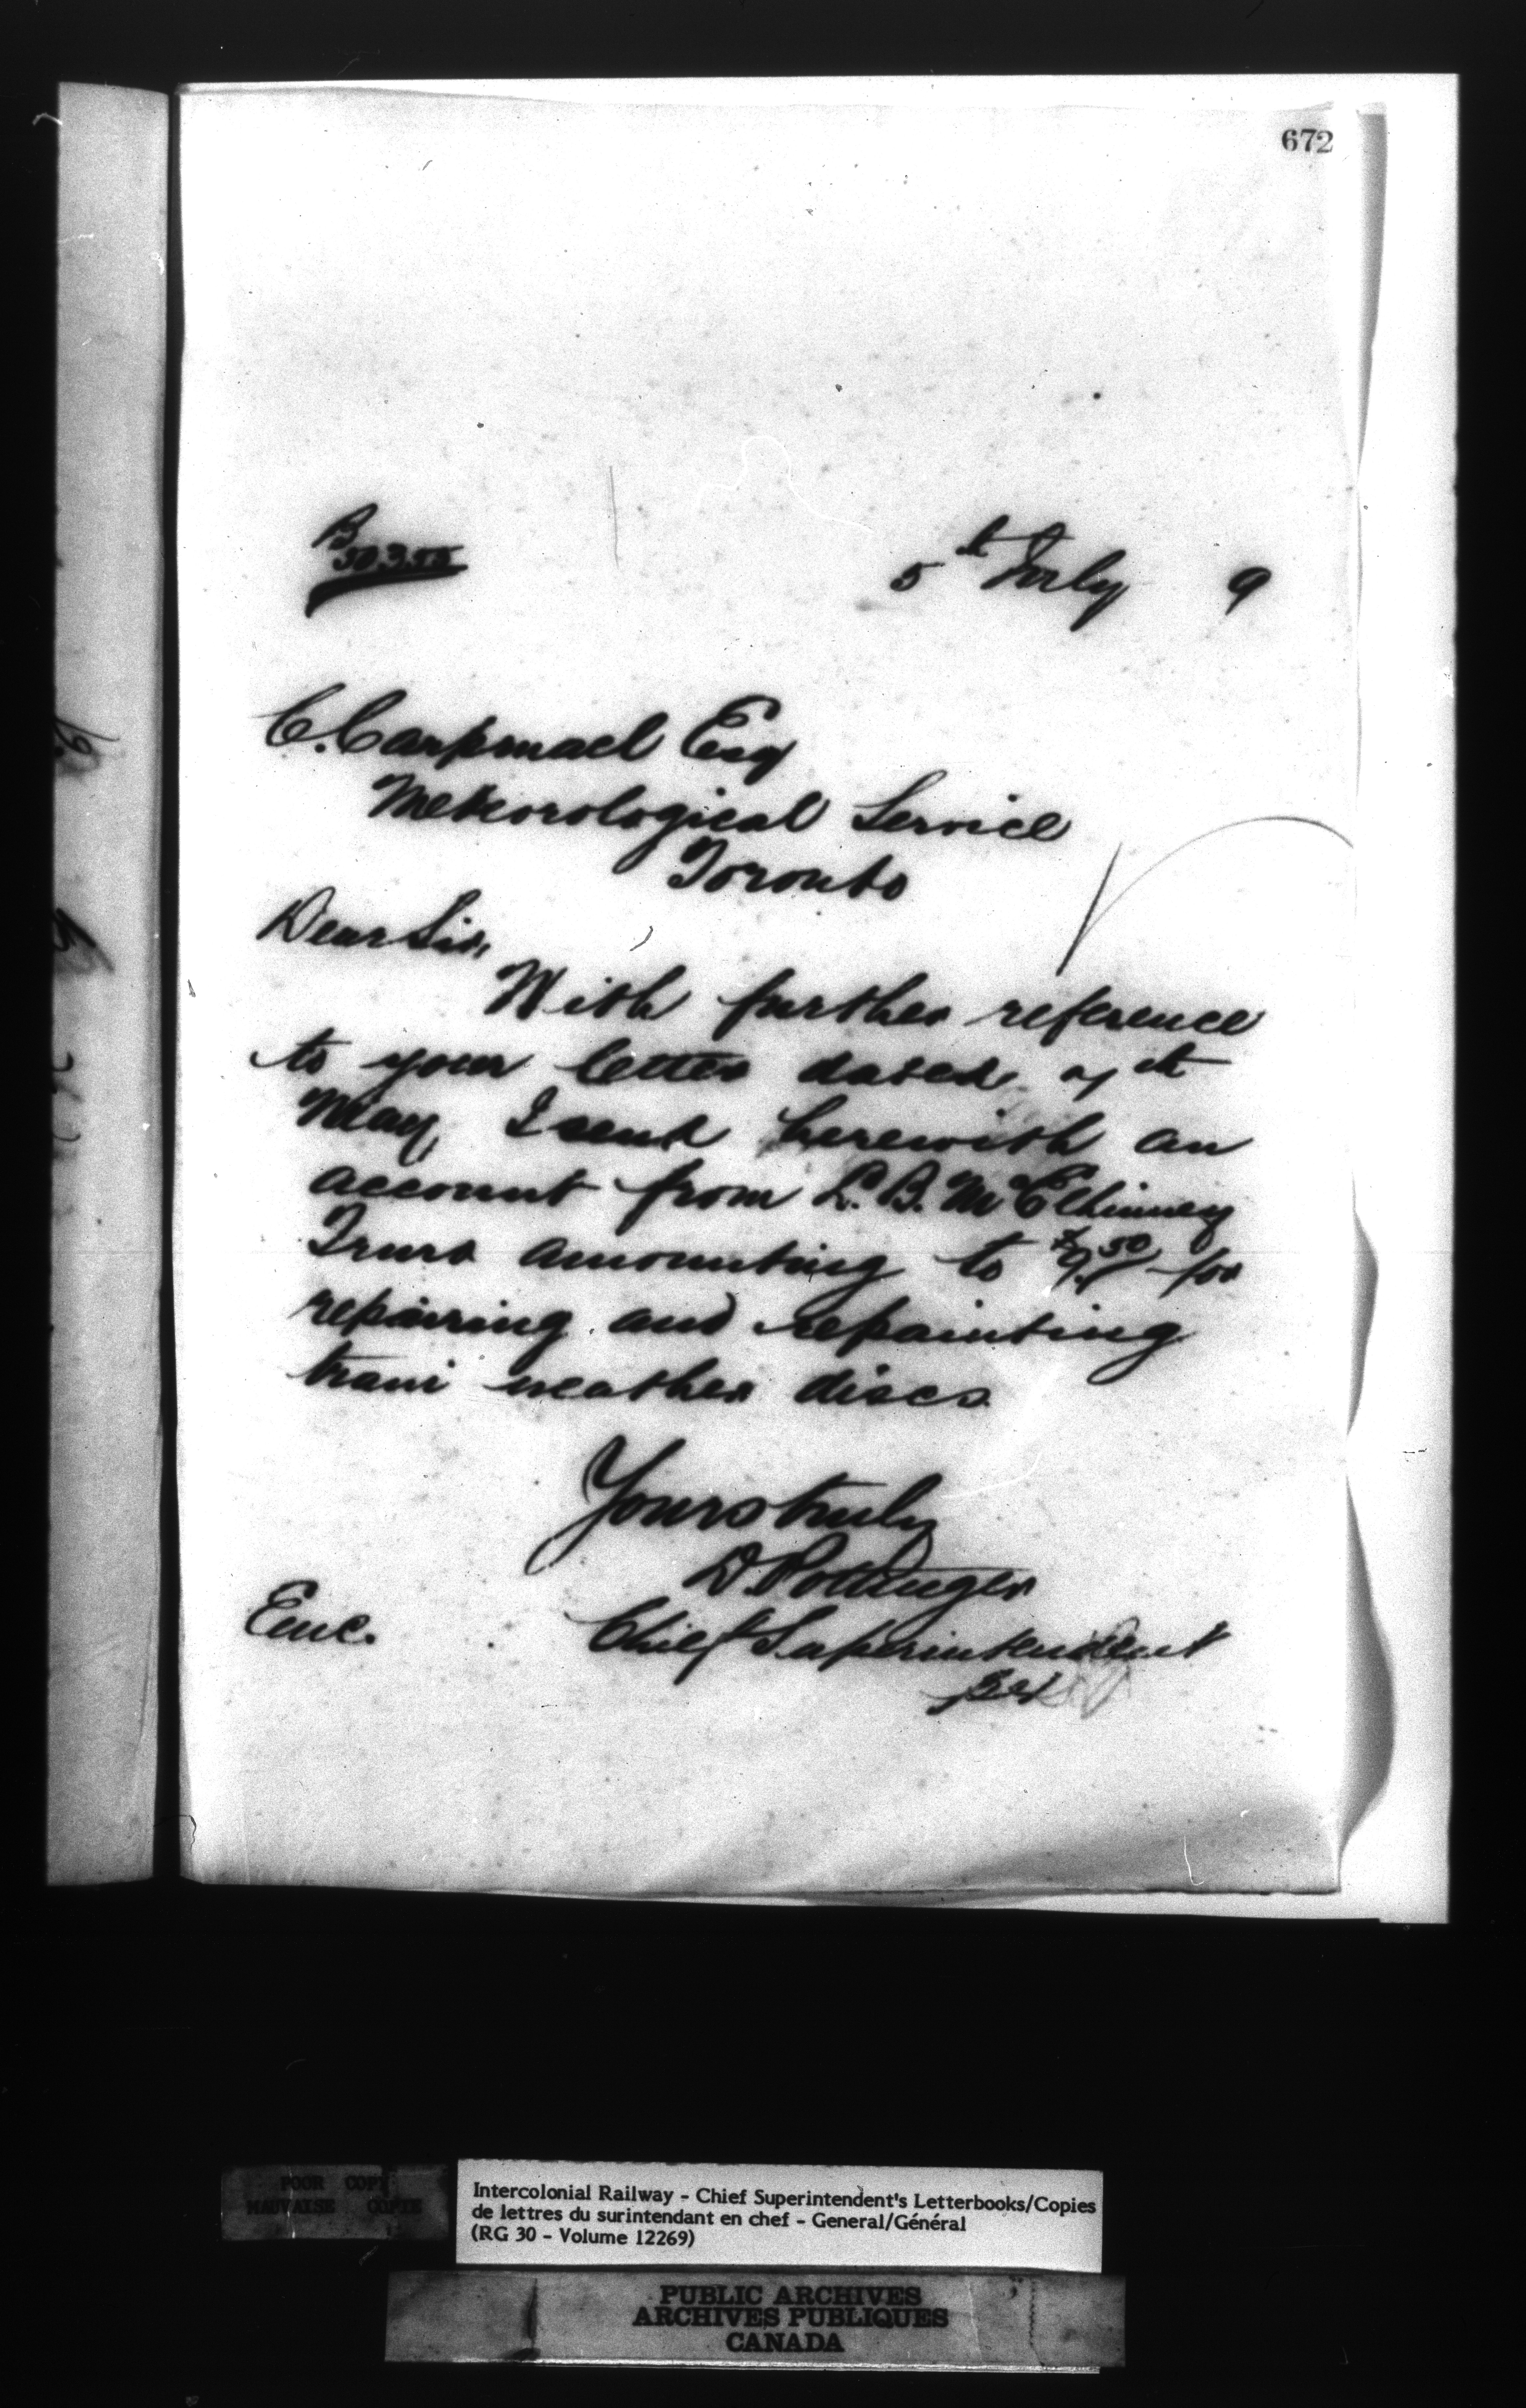 672
B
50355
5th July 9
C. Carpmael Esq
Meteorological Service
Toronto
Dear Sir,
With further reference
to your letter dated 7th
May, I send herewith an
account from L. B. McElhinney
Truro amounting to $9.50 for
repairing and repainting
train weather discs
Yours truly
D. Pottinger
Enc. Chief Superintendent
POOR COPY
MAUVAISE COPIE
Intercolonial Railway - Chief Superintendent's Letterbooks/Copies
de lettres du surintendant en chef - General/Général
(RG 30 - Volume 12269)
PUBLIC ARCHIVES
ARCHIVES PUBLIQUES
CANADA